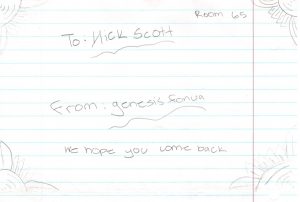 Room 65
To: Nick Scott
From: genesis Fonua
We hope you come back